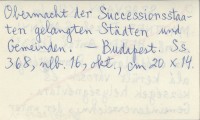 Obermacht der Successionsstaa-
ten gelangten Städten und
Gemeinden. — Budapest. Ss.
368, nlb. 16, okt., cm 20 × 14.